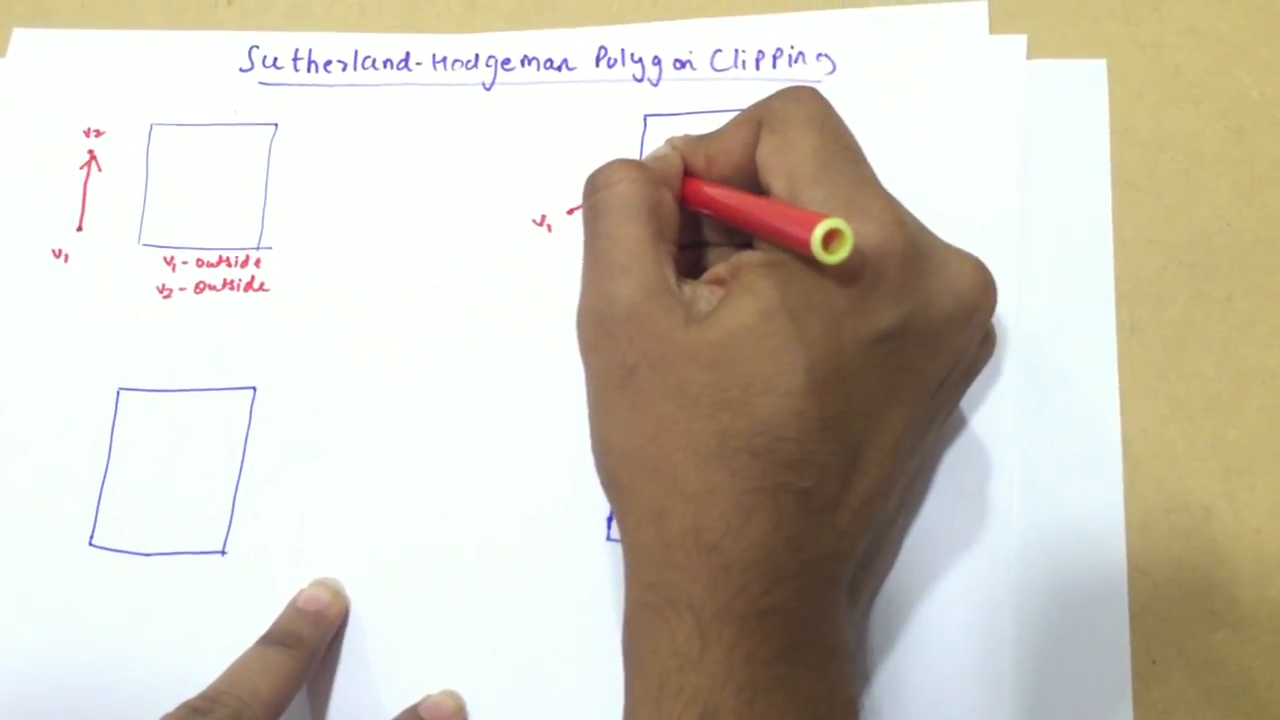 Sutherland-Hodgeman Polygon Clipping
v2
v1
v1
v1 - outside
v2 - outside